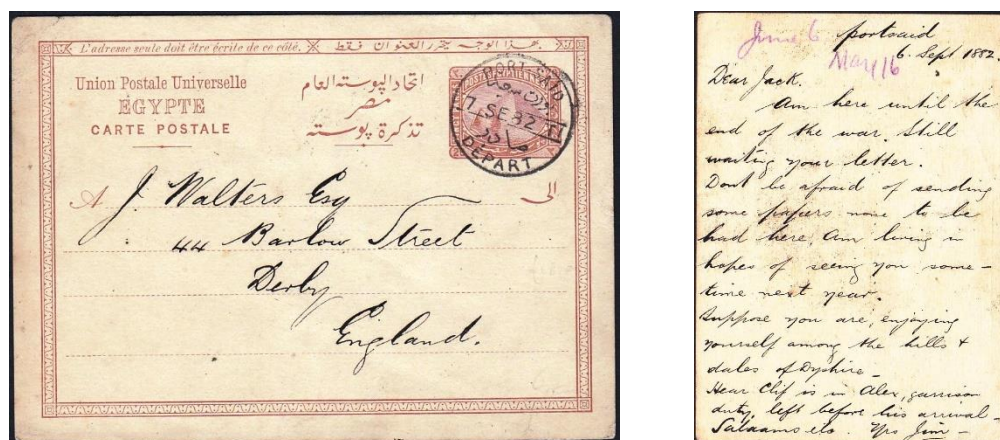 L'adresse seule doit être écrite de ce côté.
بهذا الوجه يتحرر العنوان فقط
Union Postale Universelle
ÉGYPTE
CARTE POSTALE
اتحاد البوسته العام
مصر
تذكرة بوسته
PORT-SAID
7 SE 82
DEPART
A
الى
J. Walters Esq
44 Barlow Street
Derby
England.
June 6
May 16
portsaid
6. Sept 1882.
Dear Jack.
Am here until the
end of the war. Still
waiting your letter.
Dont be afraid of sending
some papers none to be
had here. Am living in
hopes of seeing you some-
time next year.
Suppose you are enjoying
yourself among the hills +
dales of Dyshire -
Hear Clif is in Alex, garrison
duty, left before his arrival -
Salaams etc. Yrs Jim -